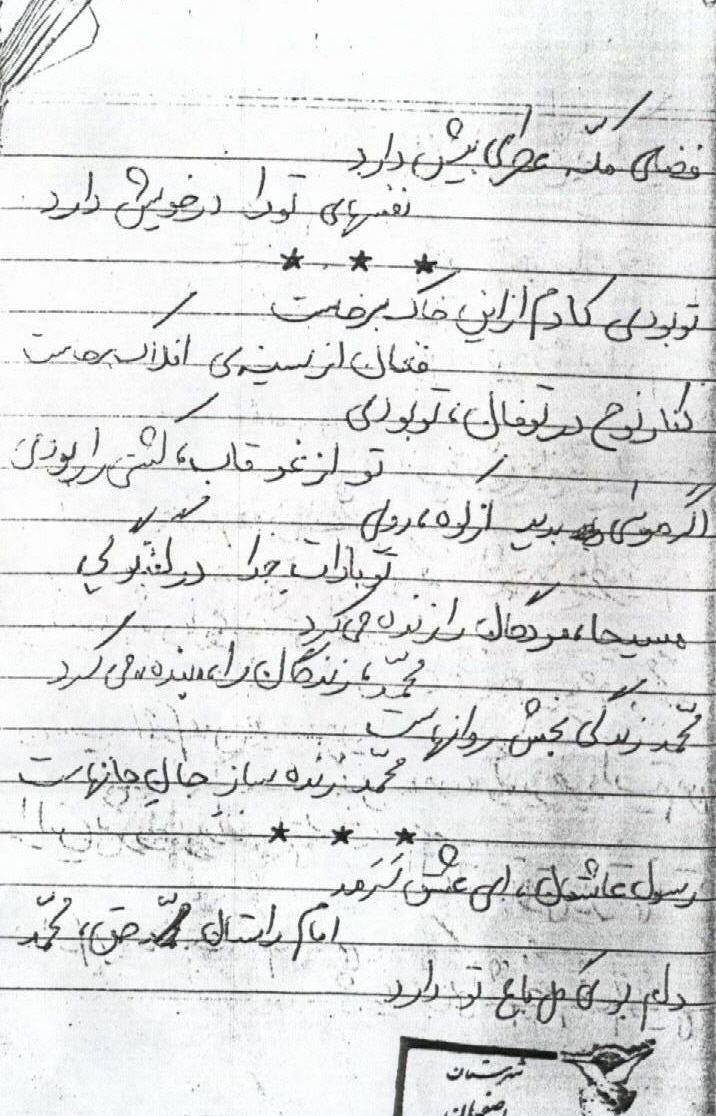 فضای مکّه عطری بیش دارد
نفسهای تو را در خویش دارد
★ ★ ★
تو بودی کادم از این خاک برخاست
فغان از سینه‌ی افلاک برخاست
کنار نوح در توفان، تو بودی
تو از غرقاب، کشتی را ربودی
اگر موسی برید از کوه،
تو با ذات خدا در گفتگویی
مسیحا، مردگان را زنده می‌کرد
محمّد، زندگان را، بنده می‌کرد
محمّد زندگی بخش روانهاست
محمّد زنده ساز جان جانهاست
★ ★ ★
رسول عاشقان، ای عشق سَرمد
امام راستان حق، محمّد
دلم بوی گل باغ تو دارد
شهرستان
اصفهان